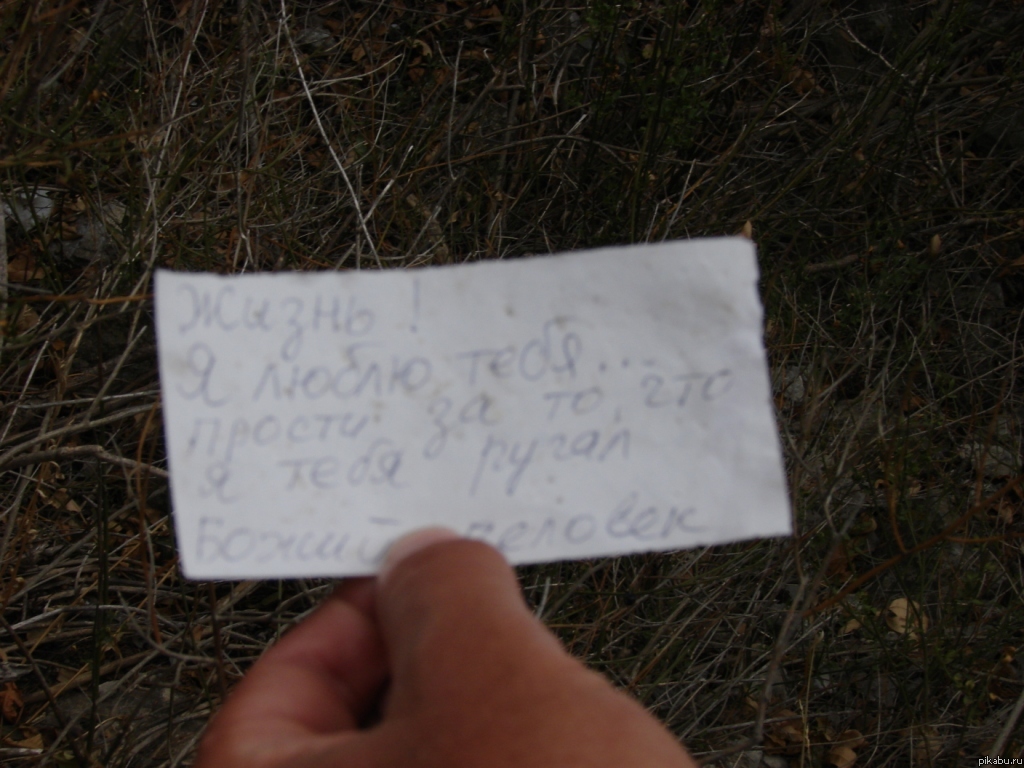 Жизнь!
Я люблю тебя...
прости за то, что
я тебя ругал
Божий человек
pikabu.ru